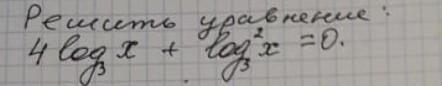 Решить уравнение:
4 log₃ x + log₃² x = 0.